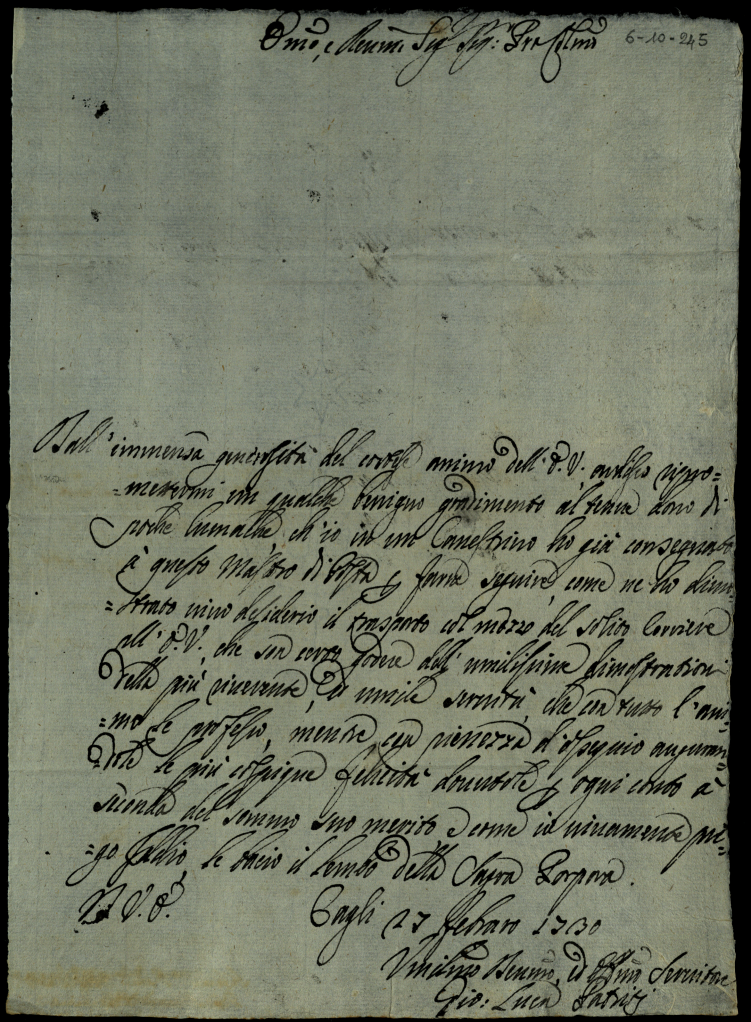 Em̃o, e Reum̃o Sig.r Sig.r Pro Col.mo
6-10-245
Dall'immensa generosità del cortese animo dell'E.V. ardisco ripro=
=mettermi un qualche benigno gradimento al tenue dono di
poche lumache, ch'io in un Canestrino ho già consegnato
à questo Mastro di Posta p farne seguire, come ne ho dimo=
=strato vivo desiderio il trasporto col mezzo del solito Corriere
all'E.V., che son certo godere dell'umilissime dimostrationi
della più riverente, ed umile servitù, che con tutto l'ani=
=mo le professo, mentre con pienezza d'ossequio auguran=
=dole le più cospique felicità dovutole p ogni conto à
seconda del sommo suo merito e come io vivamente pri=
=go Iddio, le bacio il lembo della Sagra Porpora.
D V.E.
Cagli 27 febraro 1730
Umilis.mo Deum̃o, ed Ossm̃o Servitore
Gio: Luca Patritij